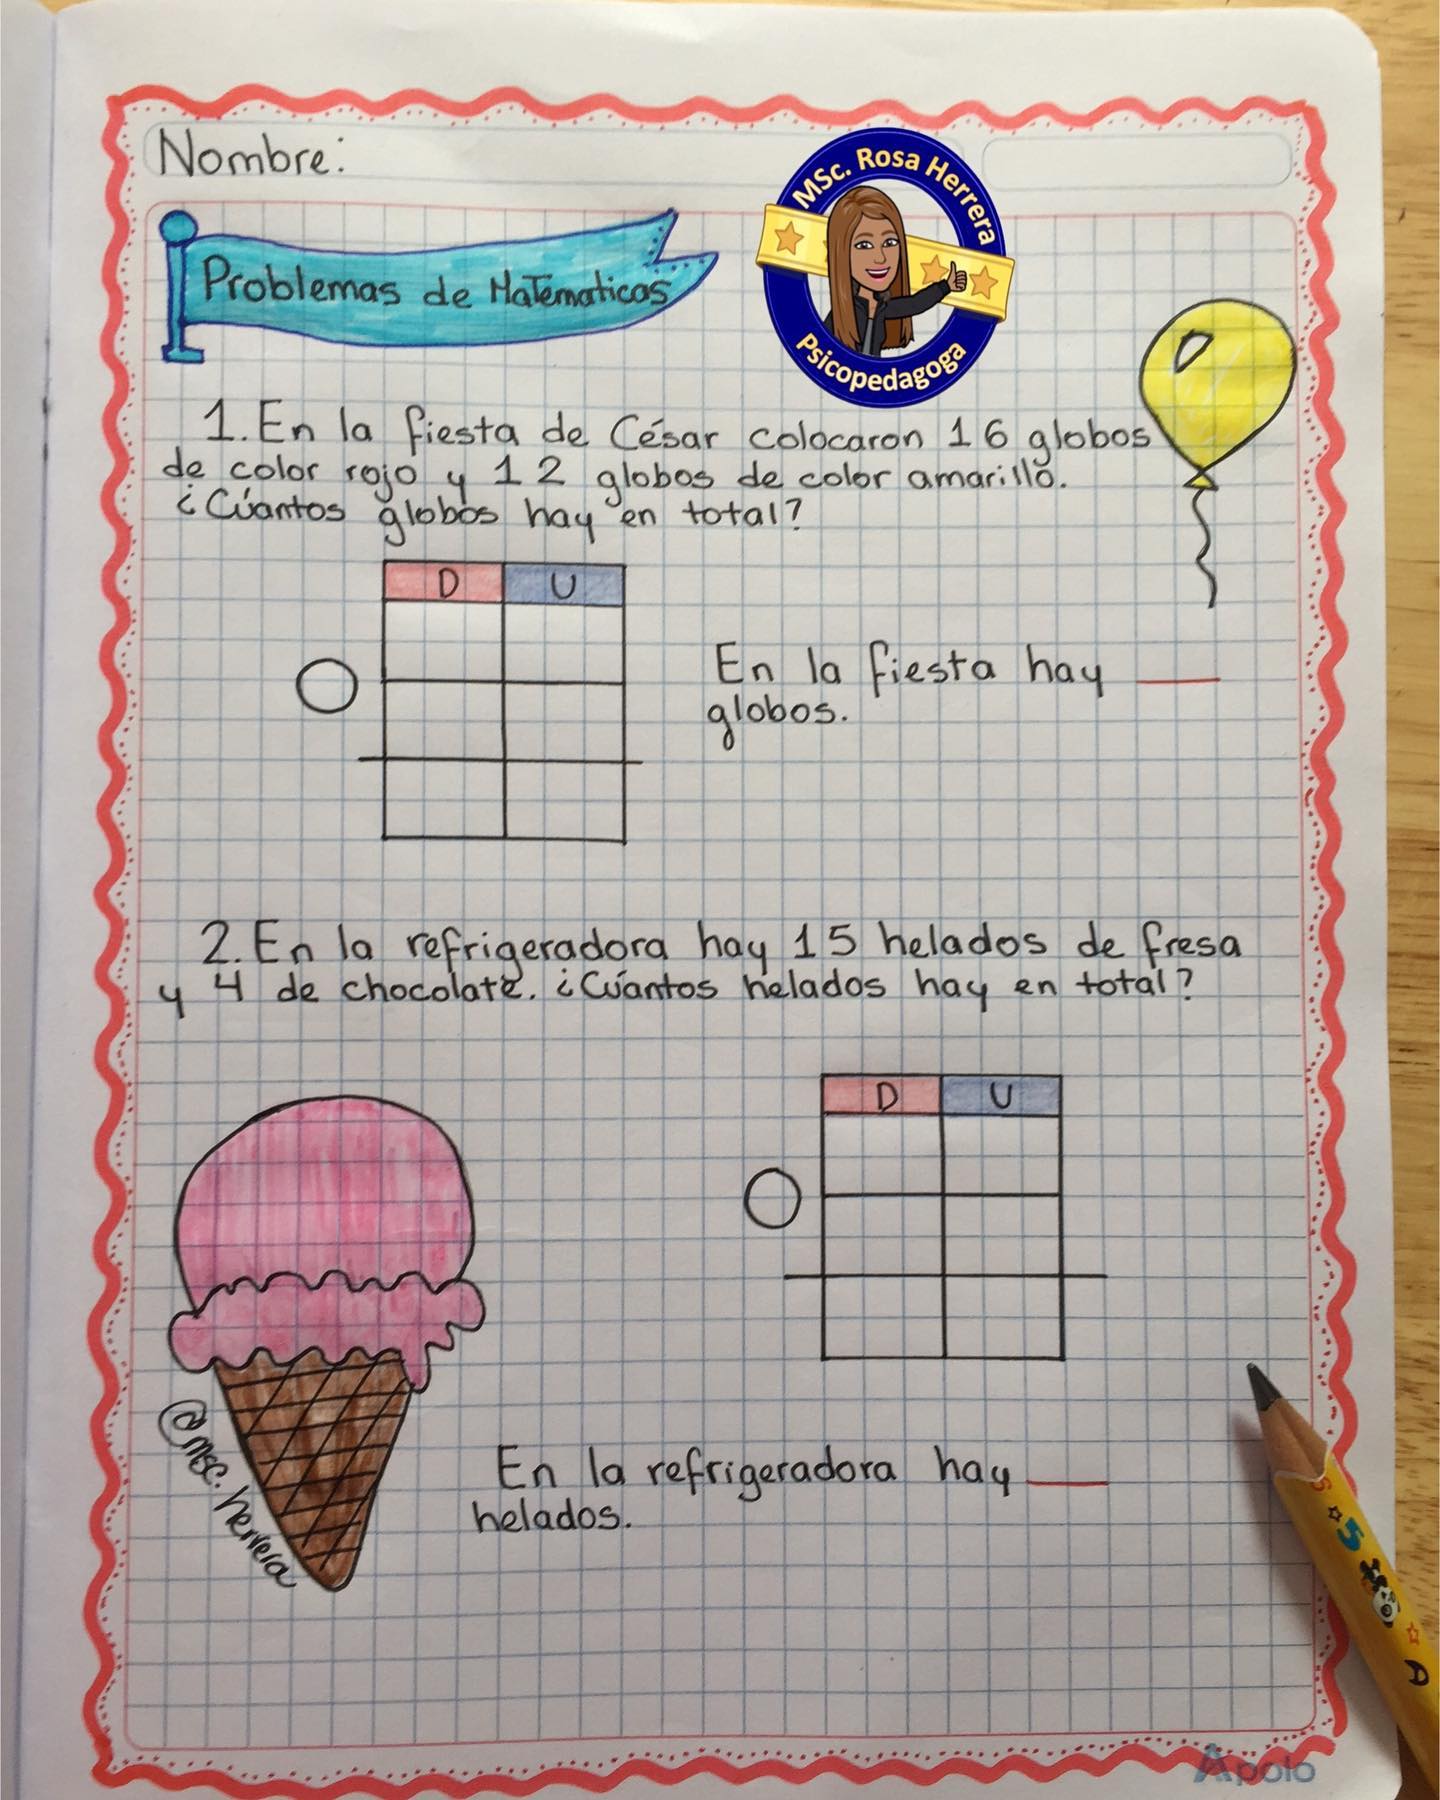 Nombre:
MSc. Rosa Herrera
Psicopedagoga
Problemas de Matematicas
1. En la fiesta de César colocaron 16 globos
de color rojo y 12 globos de color amarillo.
¿Cúantos globos hay en total?
D U
En la fiesta hay ___
globos.
2. En la refrigeradora hay 15 helados de fresa
y 4 de chocolate. ¿Cúantos helados hay en total?
D U
En la refrigeradora hay ___
helados.
@msc.herrera
5
Apolo